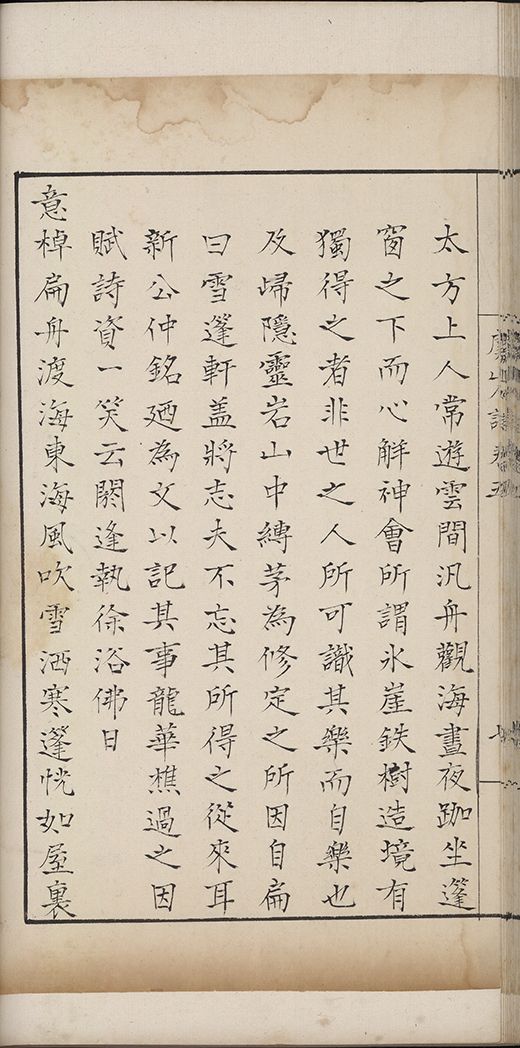 太方上人常遊雲間汎舟觀海晝夜跏坐篷
窗之下而心觧神會所謂氷崖鉄樹造境有
獨得之者非世之人所可識其樂而自樂也
及歸隱靈岩山中縛茅為修定之所因自扁
曰雪篷軒盖將志夫不忘其所得之從來耳
新公仲銘廼為文以記其事龍華樵過之因
賦詩資一笑云閼逢執徐浴佛日
意棹扁舟渡海東海風吹雪洒寒篷恍如屋裏